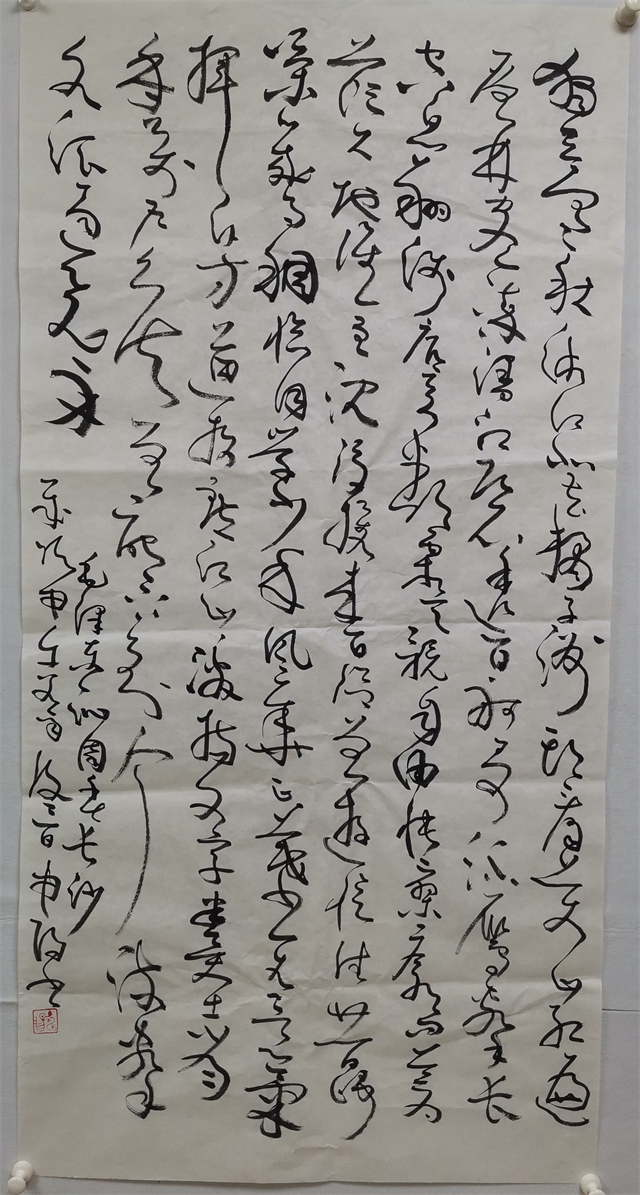 独立寒秋湘江北去橘子洲头看万山红遍
层林尽染漫江碧透百舸争流鹰击长
空鱼翔浅底万类霜天竞自由怅寥廓问苍
茫大地谁主沉浮携来百侣曾游忆往昔峥
嵘岁月稠恰同学少年风华正茂书生意气
挥斥方遒指点江山激扬文字粪土当
年万户侯曾记否到中流击水
浪遏飞舟
毛泽东词沁园春长沙